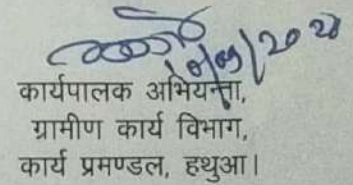 कार्यपालक अभियन्ता,
ग्रामीण कार्य विभाग,
कार्य प्रमण्डल, हथुआ।